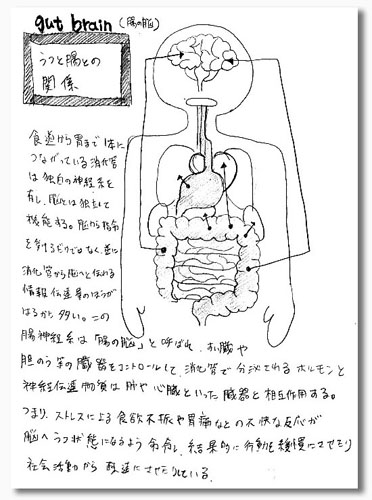 gut brain (腸の脳)
うつと腸との
関係
食道から胃まで1本に
つながっている消化管
は独自の神経系を
有し、脳とは独立して
機能する。脳から指令
を受けるだけではなく、逆に
消化管から脳へと伝わる
情報伝達量のほうが
はるかに多い。この
腸神経系は「腸の脳」と呼ばれ、
胆のう等の臓器をコントロールして、消化管で分泌されるホルモンと
神経伝達物質は肺や心臓といった臓器と相互作用する。
つまり、ストレスによる食欲不振や胃痛などの不快な反応が
脳へうつ状態になるよう命令し、結果的に行動を緩慢にさせたり
社会活動から疎遠にさせたりしている。